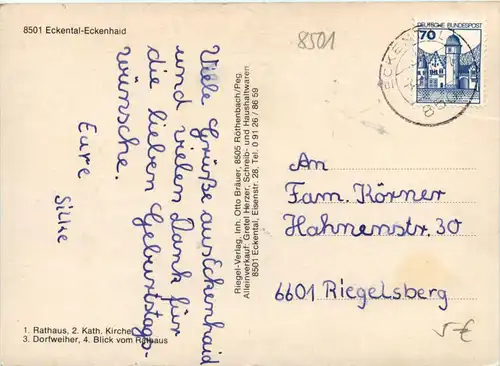 8501 Eckental-Eckenhaid
8501
DEUTSCHE BUNDESPOST
70
Viele Grüße aus Eckenhaid
und vielen Dank für
die lieben Geburtstags-
wünsche.
Eure
Silke
Riegel-Verlag, Inh. Otto Bräuer, 8505 Röthenbach/Peg.
Alleinverkauf: Gretel Herzer, Schreib- und Haushaltwaren
8501 Eckental, Eisenstr. 28, Tel. 0 91 26 / 86 59
An
Fam. Körner
Hahnenstr. 30
6601 Riegelsberg
1. Rathaus, 2. Kath. Kirche
3. Dorfweiher, 4. Blick vom Rathaus
5 €